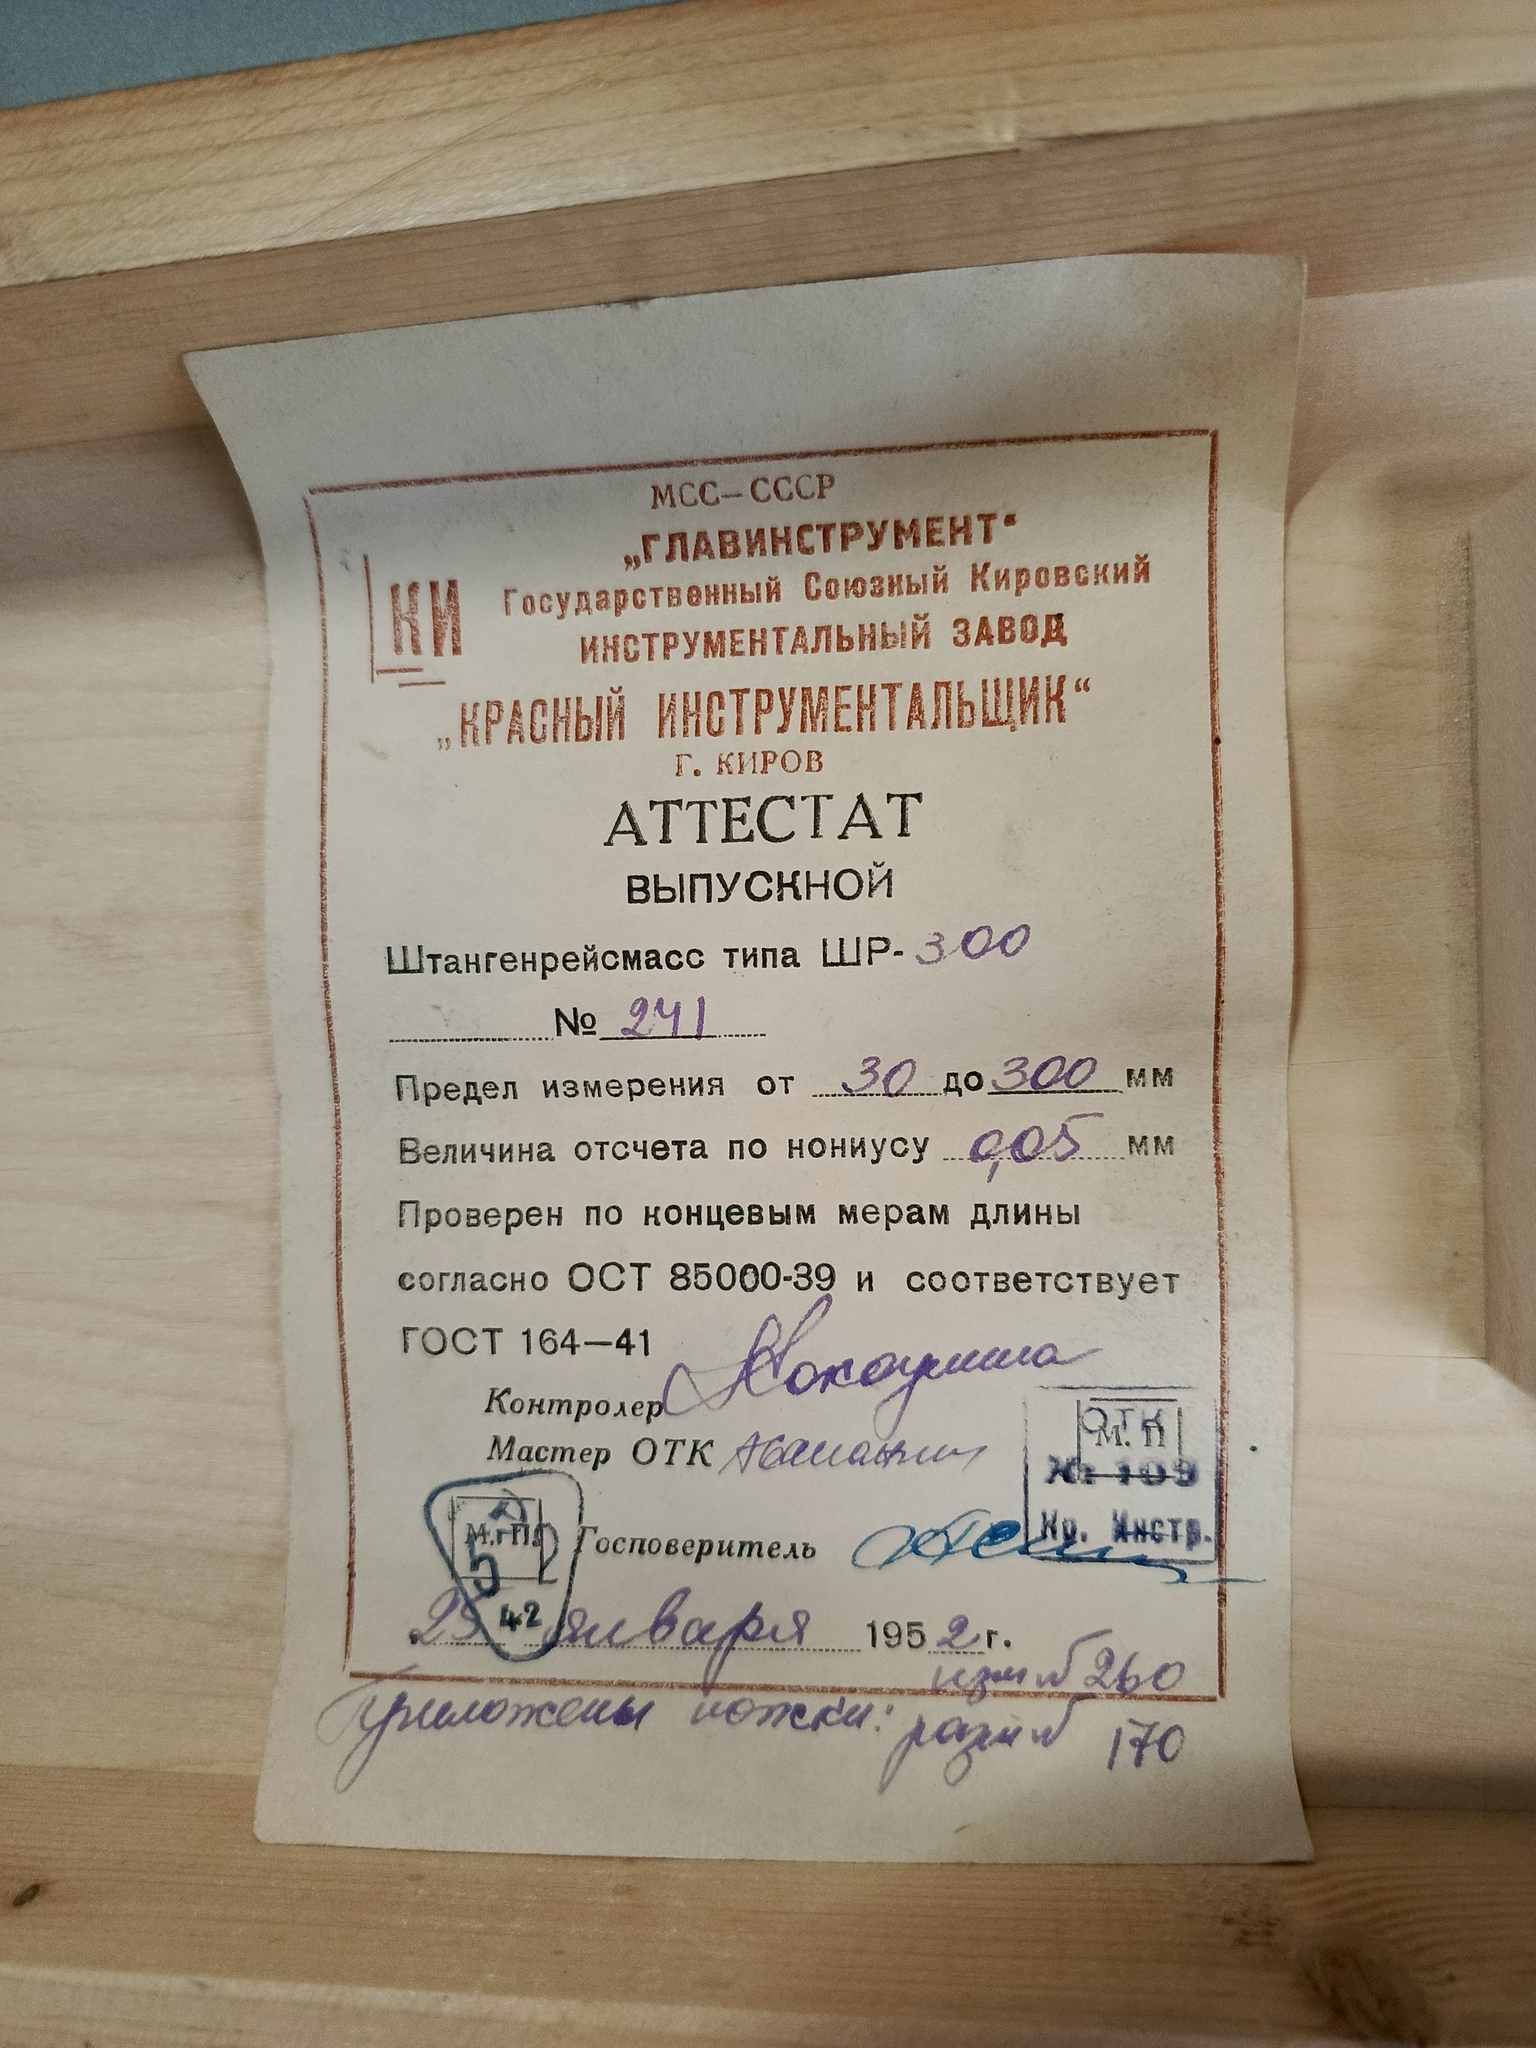 МСС—СССР
„ГЛАВИНСТРУМЕНТ“
КИ
Государственный Союзный Кировский
ИНСТРУМЕНТАЛЬНЫЙ ЗАВОД
„КРАСНЫЙ ИНСТРУМЕНТАЛЬЩИК“
Г. КИРОВ
АТТЕСТАТ
ВЫПУСКНОЙ
Штангенрейсмасс типа ШР-300
№ 241
Предел измерения от 30 до 300 мм
Величина отсчета по нониусу 0,05 мм
Проверен по концевым мерам длины
согласно ОСТ 85000-39 и соответствует
ГОСТ 164—41
Контролер
Мастер ОТК
ОТК
М. П
№ 109
Кр. Инстр.
М. П.
Госповеритель
5
42
января 1952 г.
изм № 260
Приложены ножки:
разм № 170